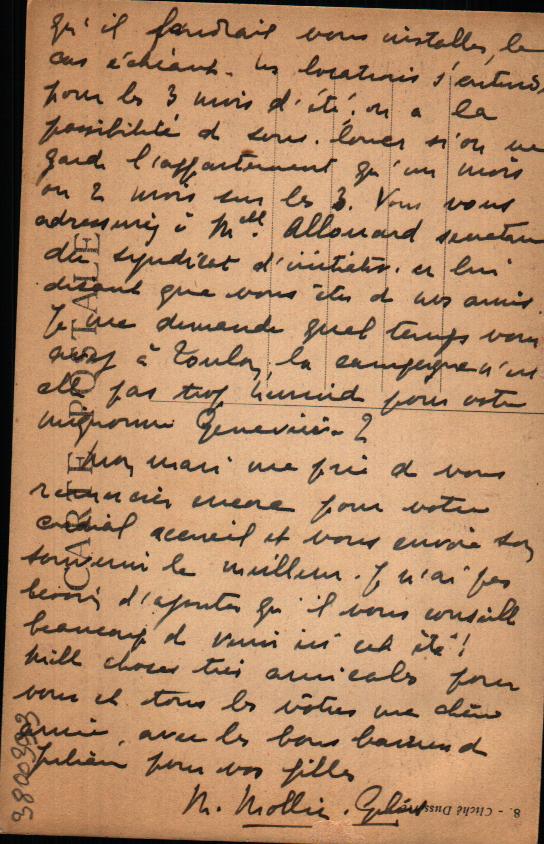 qu'il faudrait vous installer, le
cas échéant. Les locations s'entend
pour les 3 mois d'été; on a la
possibilité de sous-louer si on ne
garde l'appartement qu'un mois
ou 2 mois sur les 3. Vous vous
adresseriez à Mell Allouard secrétaire
du syndicat d'initiative en lui
disant que vous êtes de nos amis.
Je me demande quel temps vous
avez à Toulon, la campagne n'est
elle pas trop humide pour votre
mignonne Geneviève ?
Mon mari me prie de vous
remercier encore pour votre
cordial accueil et vous envoie son
souvenir le meilleur. Je n'ai pas
besoin d'ajouter qu'il vous conseille
beaucoup de venir ici cet été !
Mille choses très amicales pour
vous et tous les vôtres ma chère
amie, avec les bons baisers de
pour vos filles
M. Mollie
CARTE POSTALE
3800383
8. - Cliché Duss